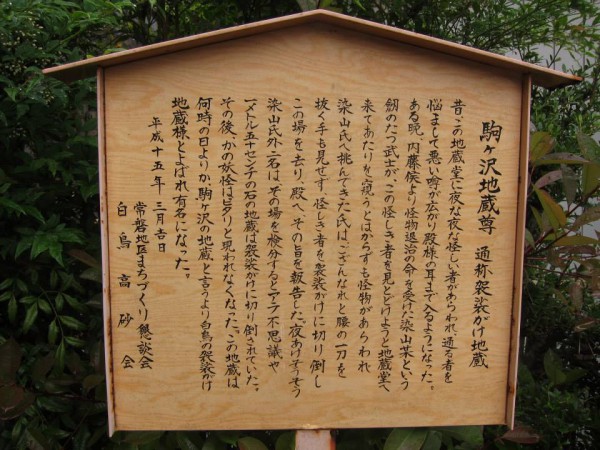 駒ヶ沢地蔵尊 通称袈裟がけ地蔵
昔この地蔵堂に夜な夜な怪しい者があらわれ、通る者を
悩まして悪い噂が広がり殿様の耳まで入るようになった。
ある晩、内藤侯より怪物退治の命を受けた染山某という
剱のたつ武士が、この怪しき者を見とどけようと地蔵堂へ
来てあたりを窺うとはからずも怪物があらわれ
染山氏へ挑んできた氏は、ござんなれと腰の一刀を
抜く手も見せず、怪しき者を袈裟がけに切り倒し
この場を去り、殿へその旨を報告した。夜あけそうそう
染山氏外二名は、その場を検分するとアラ不思議や
一メートル五十センチの石の地蔵は袈裟がけに切り倒されていた。
その後、かの妖怪はピタリと現われなくなった、この地蔵は
何時の日よりか駒ヶ沢の地蔵と言うより白鳥の袈裟がけ
地蔵様とよばれ有名になった。
平成十五年 三月吉日
常磐地区まちづくり懇談会
白鳥高砂会